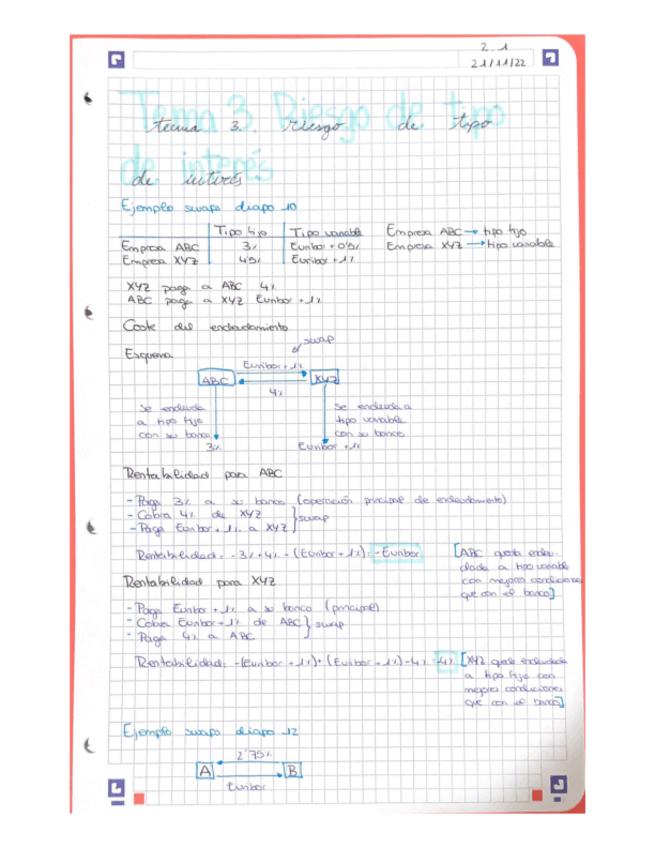 2.1
21/11/22
Tema 3. Riesgo de tipo
tema 3. riesgo de tipo
de interés
de interés
Ejemplo swaps diapo 10
Tipo fijo Tipo variable
Empresa ABC 3% Euribor + 0'5%
Empresa XYZ 4'5% Euribor + 1%
Empresa ABC → tipo fijo
Empresa XYZ → tipo variable
XYZ paga a ABC 4%
ABC paga a XYZ Euribor + 1%
Coste del endeudamiento
Esquema
swap
Euribor + 1%
ABC XYZ
4%
Se endeuda
a tipo fijo
con su banco
3%
Se endeuda a
tipo variable
con su banco
Euribor + 1%
Rentabilidad para ABC
- Paga 3% a su banco (operación principal de endeudamiento)
- Cobra 4% de XYZ
- Paga Euribor + 1% a XYZ } swap
Rentabilidad = -3% + 4% - (Euribor + 1%) = -Euribor
[ABC queda endeu-
dada a tipo variable
con mejores condiciones
que con el banco]
Rentabilidad para XYZ
- Paga Euribor + 1% a su banco (principal)
- Cobra Euribor + 1% de ABC } swap
- Paga 4% a ABC
Rentabilidad = -(Euribor + 1%) + (Euribor + 1%) - 4% = -4%
[XYZ queda endeudada
a tipo fijo con
mejores condiciones
que con el banco]
Ejemplo swaps diapo 12
2'75%
A B
Euribor